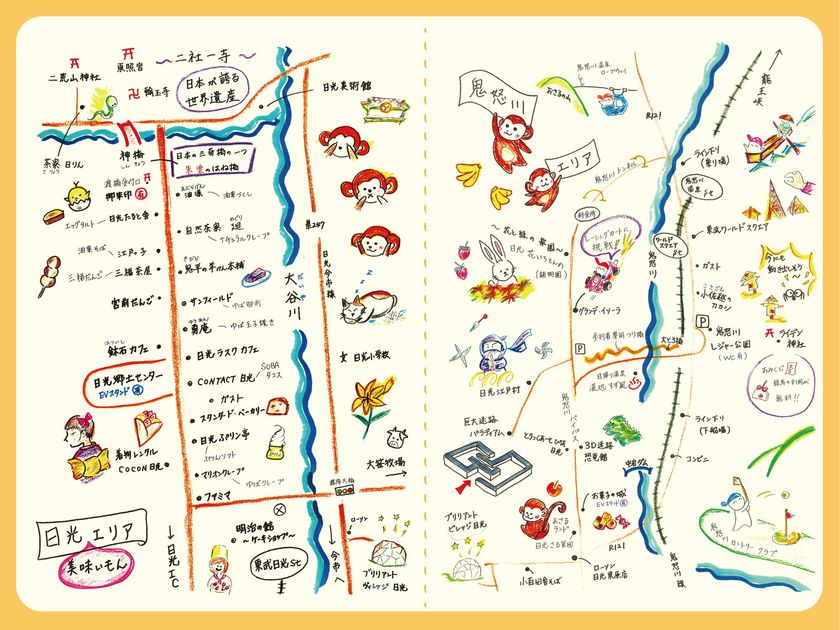 二荒山神社
東照宮
〜二社一寺〜
卍 輪王寺
日本が誇る
世界遺産
日光美術館
茶寮 日りん
さりょう
神橋
しんきょう
日本の三奇橋の一つ
朱塗のはね橋
渡橋受付
御朱印 有
油源
油源づくし
エッグタルト
日光たるし舎
自然茶寮 廻
めぐり
ナチュラルクレープ
湯葉そば
江戸っ子
三福だんご
三福茶屋
鬼平の羊かん本舗
宮前だんご
サンフィールド
ゆば御膳
大谷川
県247
日光今市線
ゆば玉子焼き
鉢石カフェ
はついし
日光ラスク カフェ
日光小学校
日光郷土センター
EVスタンド
CONTACT 日光
SOBA
タコス
ガスト
スタンダード・ベーカリー
日光ぷりん亭
ぷりんソフト
着物レンタル
COCON 日光
マリオンクレープ
ゆばクレープ
大笹牧場
霧降大橋
ファミマ
日光エリア
美味いもん
↓日光IC
明治の館
〜ケーキショップ〜
東武日光st
↓今市へ
ローソン
ブリリアント
ヴィレッジ 日光
鬼怒川
エリア
鬼怒川温泉
ロープウェイ
おさるの山
R121
龍王峡
ライン下り
(乗り場)
鬼怒川
温泉 st
鬼怒川トンネル
料金所
〜花と緑の楽園〜
日光 花いちもんめ
(植物園)
レーシングカートに
挑戦!
ワールド
スクエア
st
東武ワールドスクエア
ガスト
小佐越の
カカシ
今にも
動き出しそう〜
グランデ・イソーラ
鬼怒川
P
鬼怒川
レジャー公園
(WC有)
ライデン
神社
歩行者専用つり橋
P
日光江戸村
ライン下り
(下船場)
コンビニ
鬼怒川バイパス
巨大迷路
パラディアム
とりっくあーとぴあ
日光
3D迷路
恐竜館
中岩ダム
お菓子の城
EVスタンド
おさる
ランド
日光さる軍団
ブリリアント
ビレッジ日光
R121
小百田舎そば
ローソン
日光栗原店
鬼怒川線
鬼怒川カントリークラブ